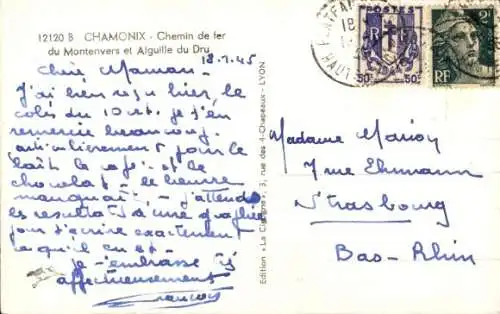 12120 B CHAMONIX - Chemin de fer
du Montenvers et Aiguille du Dru
18.7.45
Chère Maman -
J'ai bien reçu hier, le
colis du 10 et je t'en
remercie beaucoup.
particulièrement pour le
lait, le café et le
chocolat - le beurre
manquait - J'attends
les résultats d'une graphie
pour t'écrire exactement
ce qu'il en est -
Je t'embrasse
affectueusement
François
Edition "La Cigogne" - 3, rue des 4-Chapeaux - LYON
POSTES
RF
50c 50c
2F
RF
HAUTE
Madame Marion
7 rue Ehrmann
Strasbourg
Bas-Rhin